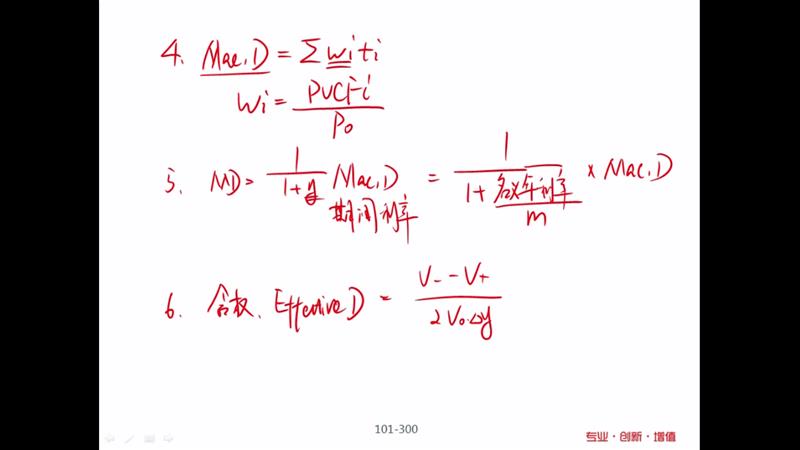 4. Mac.D = Σ wi ti
wi = PVCFi / P0
5. MD = 1 / (1+y) Mac.D = 1 / (1 + 名义年利率 / m) × Mac.D
期间利率
6. 含权. Effective D = (V- - V+) / (2V0·Δy)
101-300
专业·创新·增值